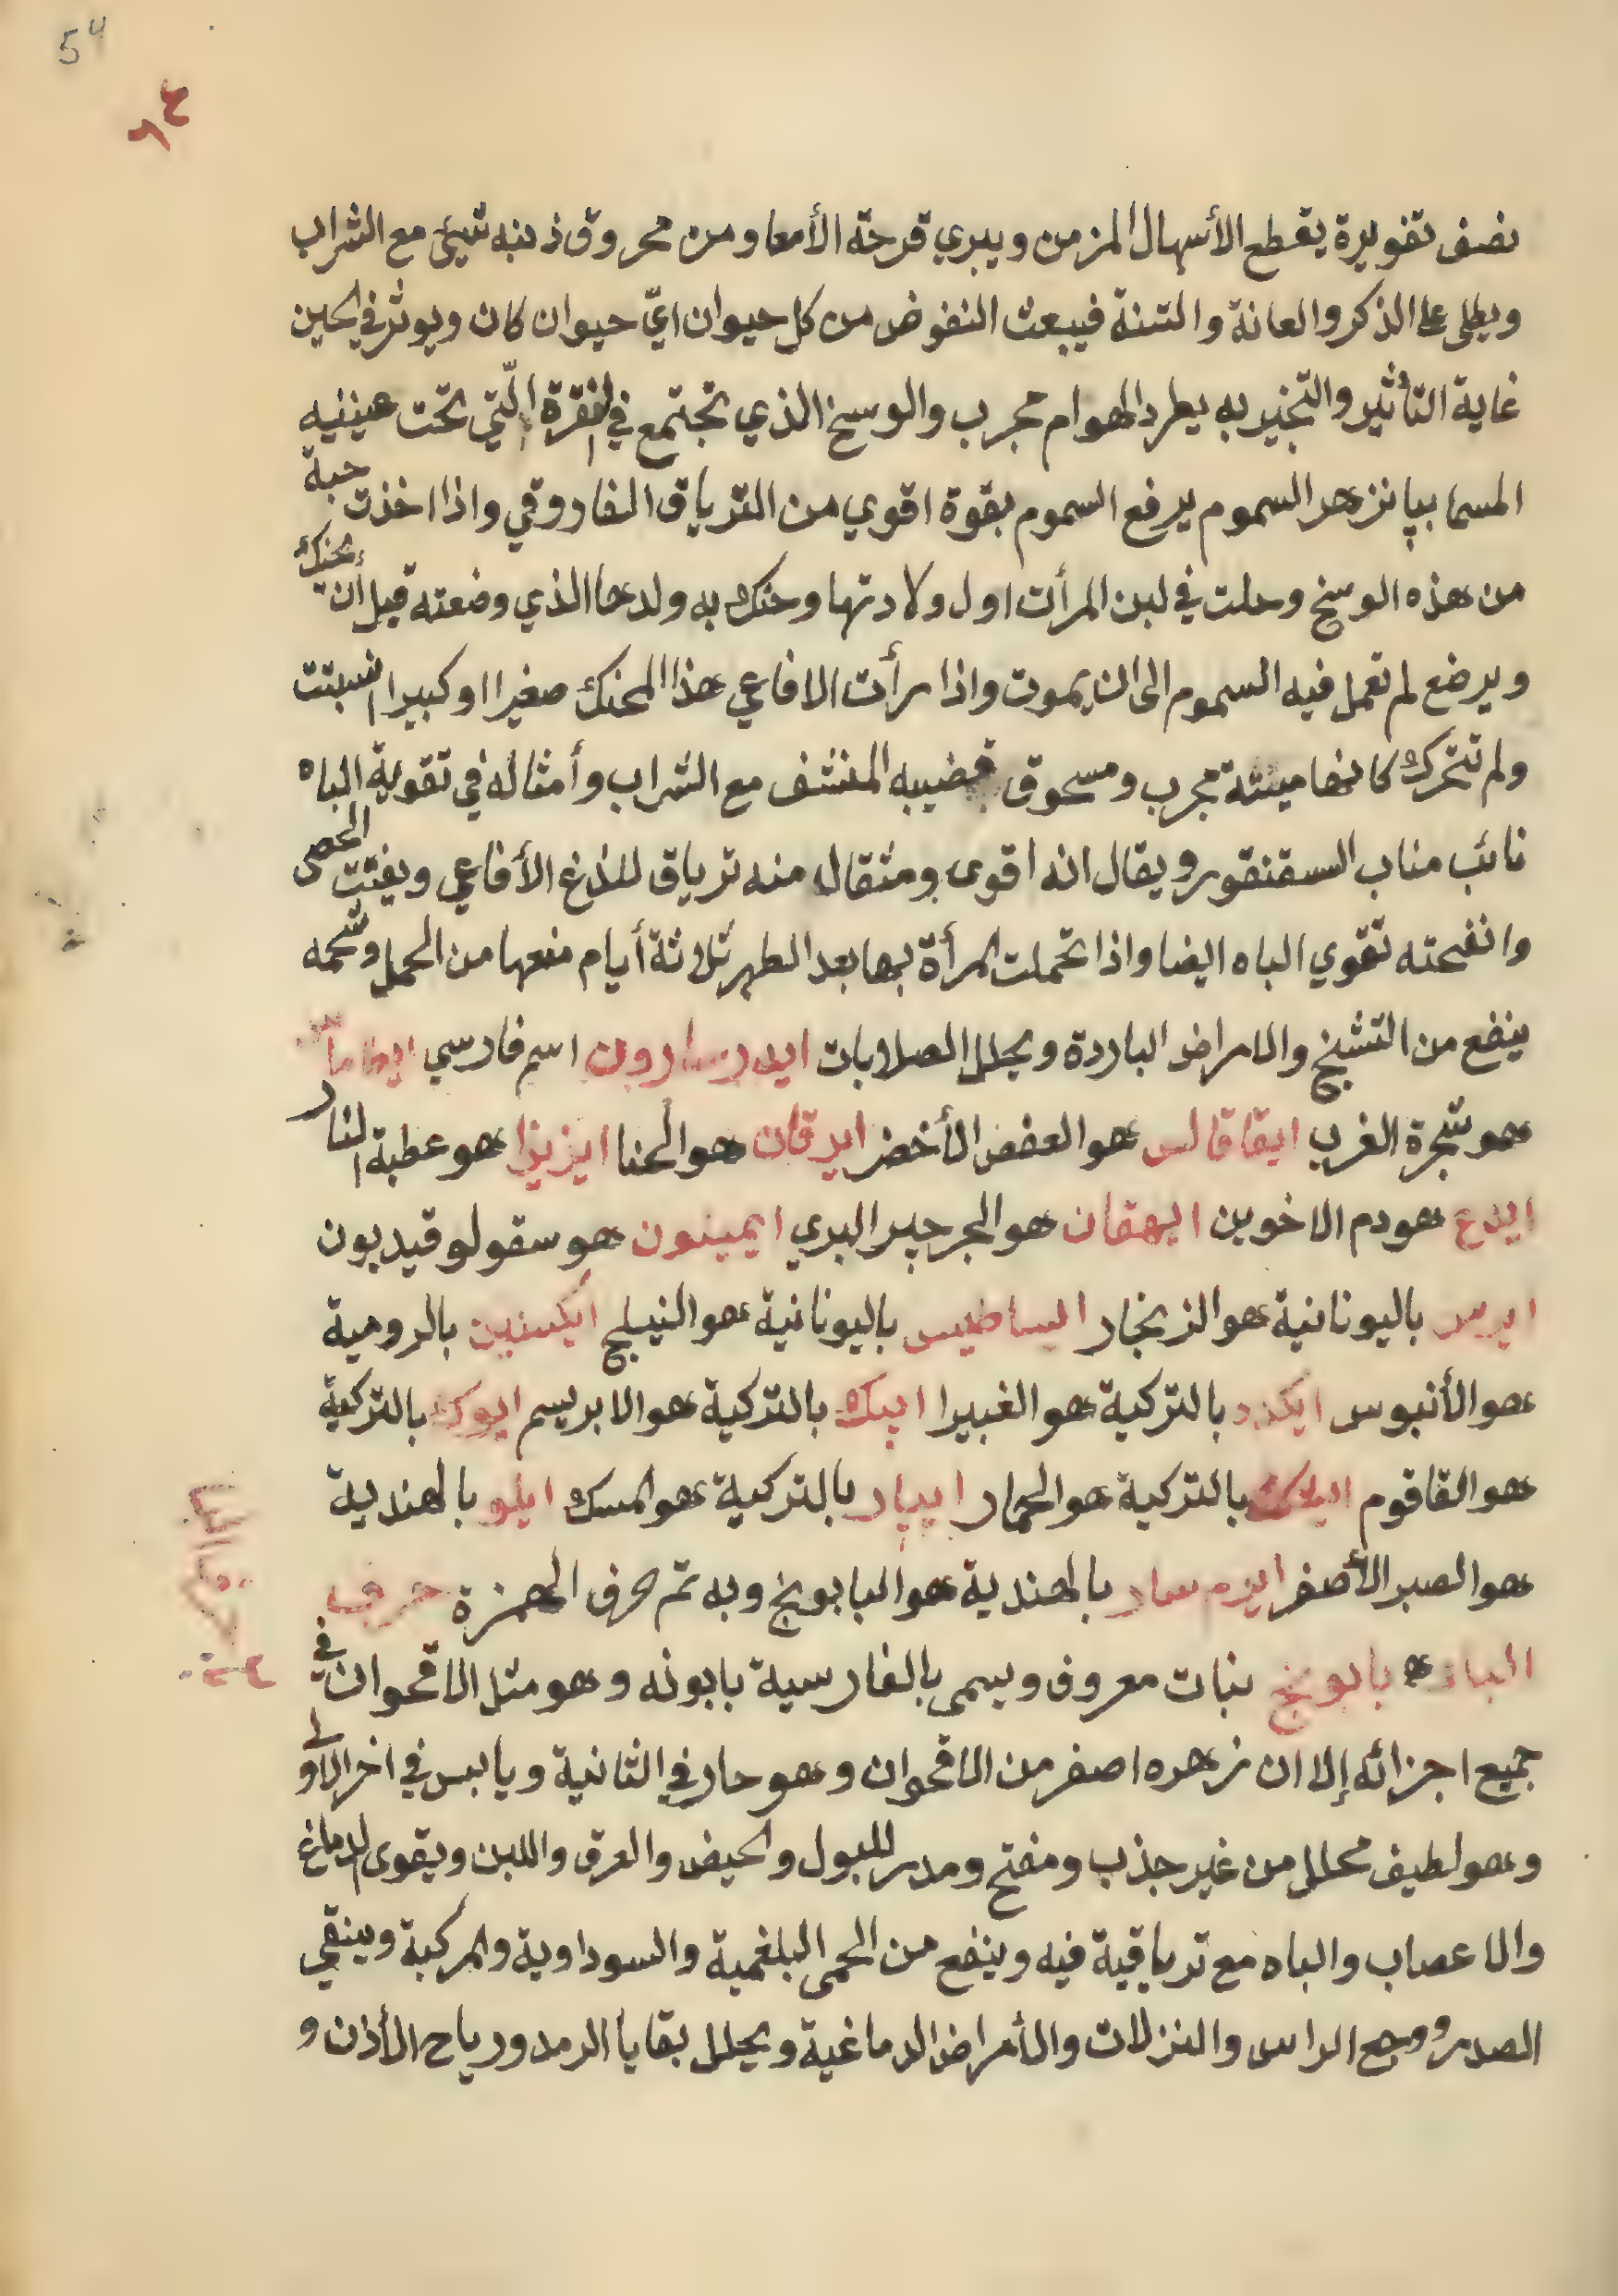 54
نصف تقويرة يقطع الأسهال المزمن ويبري قرحة الأمعا ومن محروق ذنبه شيئ مع الشراب
ويطلى على الذكر والعانة والتنة فيبعث النفوض من كل حيوان ايّ حيوان كان ويوثر في الحين
غاية التأثير والتبخير به يطرد الهوام مجرب والوسخ الذي تجتمع في النقرة الّتي تحت عينيه
المسما ببپانزهر السموم يرفع السموم بقوة اقوي من الترياق الفاروقي واذا اخذت حبة
من هذه الوسخ وحلت في لبن المرأت اول ولادتها وحنك به ولدها الذي وضعته قبل أن يحنك
ويرضع لم تعمل فيه السموم الى ان يموت واذا رأت الافاعي هذا المحنك صغيرا او كبيرا انسبتت
ولم تتحرك كانها ميتة مجرب ومسحوق قضيبه المنشف مع الشراب وأمثاله في تقوية الباه
نائب مناب السقنقور ويقال انه اقوى ومثقال منه ترياق للذغ الأفاعي ويفتت الحصى
وانفحته تقوي الباه ايضا واذا تحملت المرأة بها بعد الطهر ثلاثة أيام منعها من الحمل وشحمه
ينفع من التشنج والامراض الباردة ويحلل الصلابات ايدرسارون اسم فارسي
هو شجرة الغرب ايقاقالس هو العفص الأخضر ايرقان هو الحنا ايزيزا هو عطبة النار
ايدع هو دم الاخوين ايهقان هو الجرجير البري ايمينون هو سقولوقيديون
ايرس باليونانية هو الزنجار ايساطيس باليونانية هو النيلج ايكسنين بالرومية
هو الأنبوس ايكده بالتركية هو الغبيرا ايپك بالتركية هو الابريسم ايوك بالتركية
هو القاقوم ايلاك بالتركية هو الحمار ايپار بالتركية هو المسك ايلو بالهندية
هو الصبر الأصفر ايرم سار بالهندية هو البابونج وبه تم حرف الهمزة حرف
الباء بابونج نبات معروف ويسمى بالفارسية بابونه وهو مثل الاقحوان في
جميع اجزائه إلا ان زهره اصفر من الاقحوان وهو حار في الثانية ويابس في اخر الاولى
وهو لطيف محلل من غير جذب ومفتح ومدر للبول والحيض والعرق واللبن ويقوى الدماغ
والاعصاب والباه مع ترياقية فيه وينفع من الحمى البلغمية والسوداوية والمركبة وينقي
الصدر ووجع الراس والنزلات والأمراض الدماغية ويحلل بقايا الرمد ورياح الأذن و